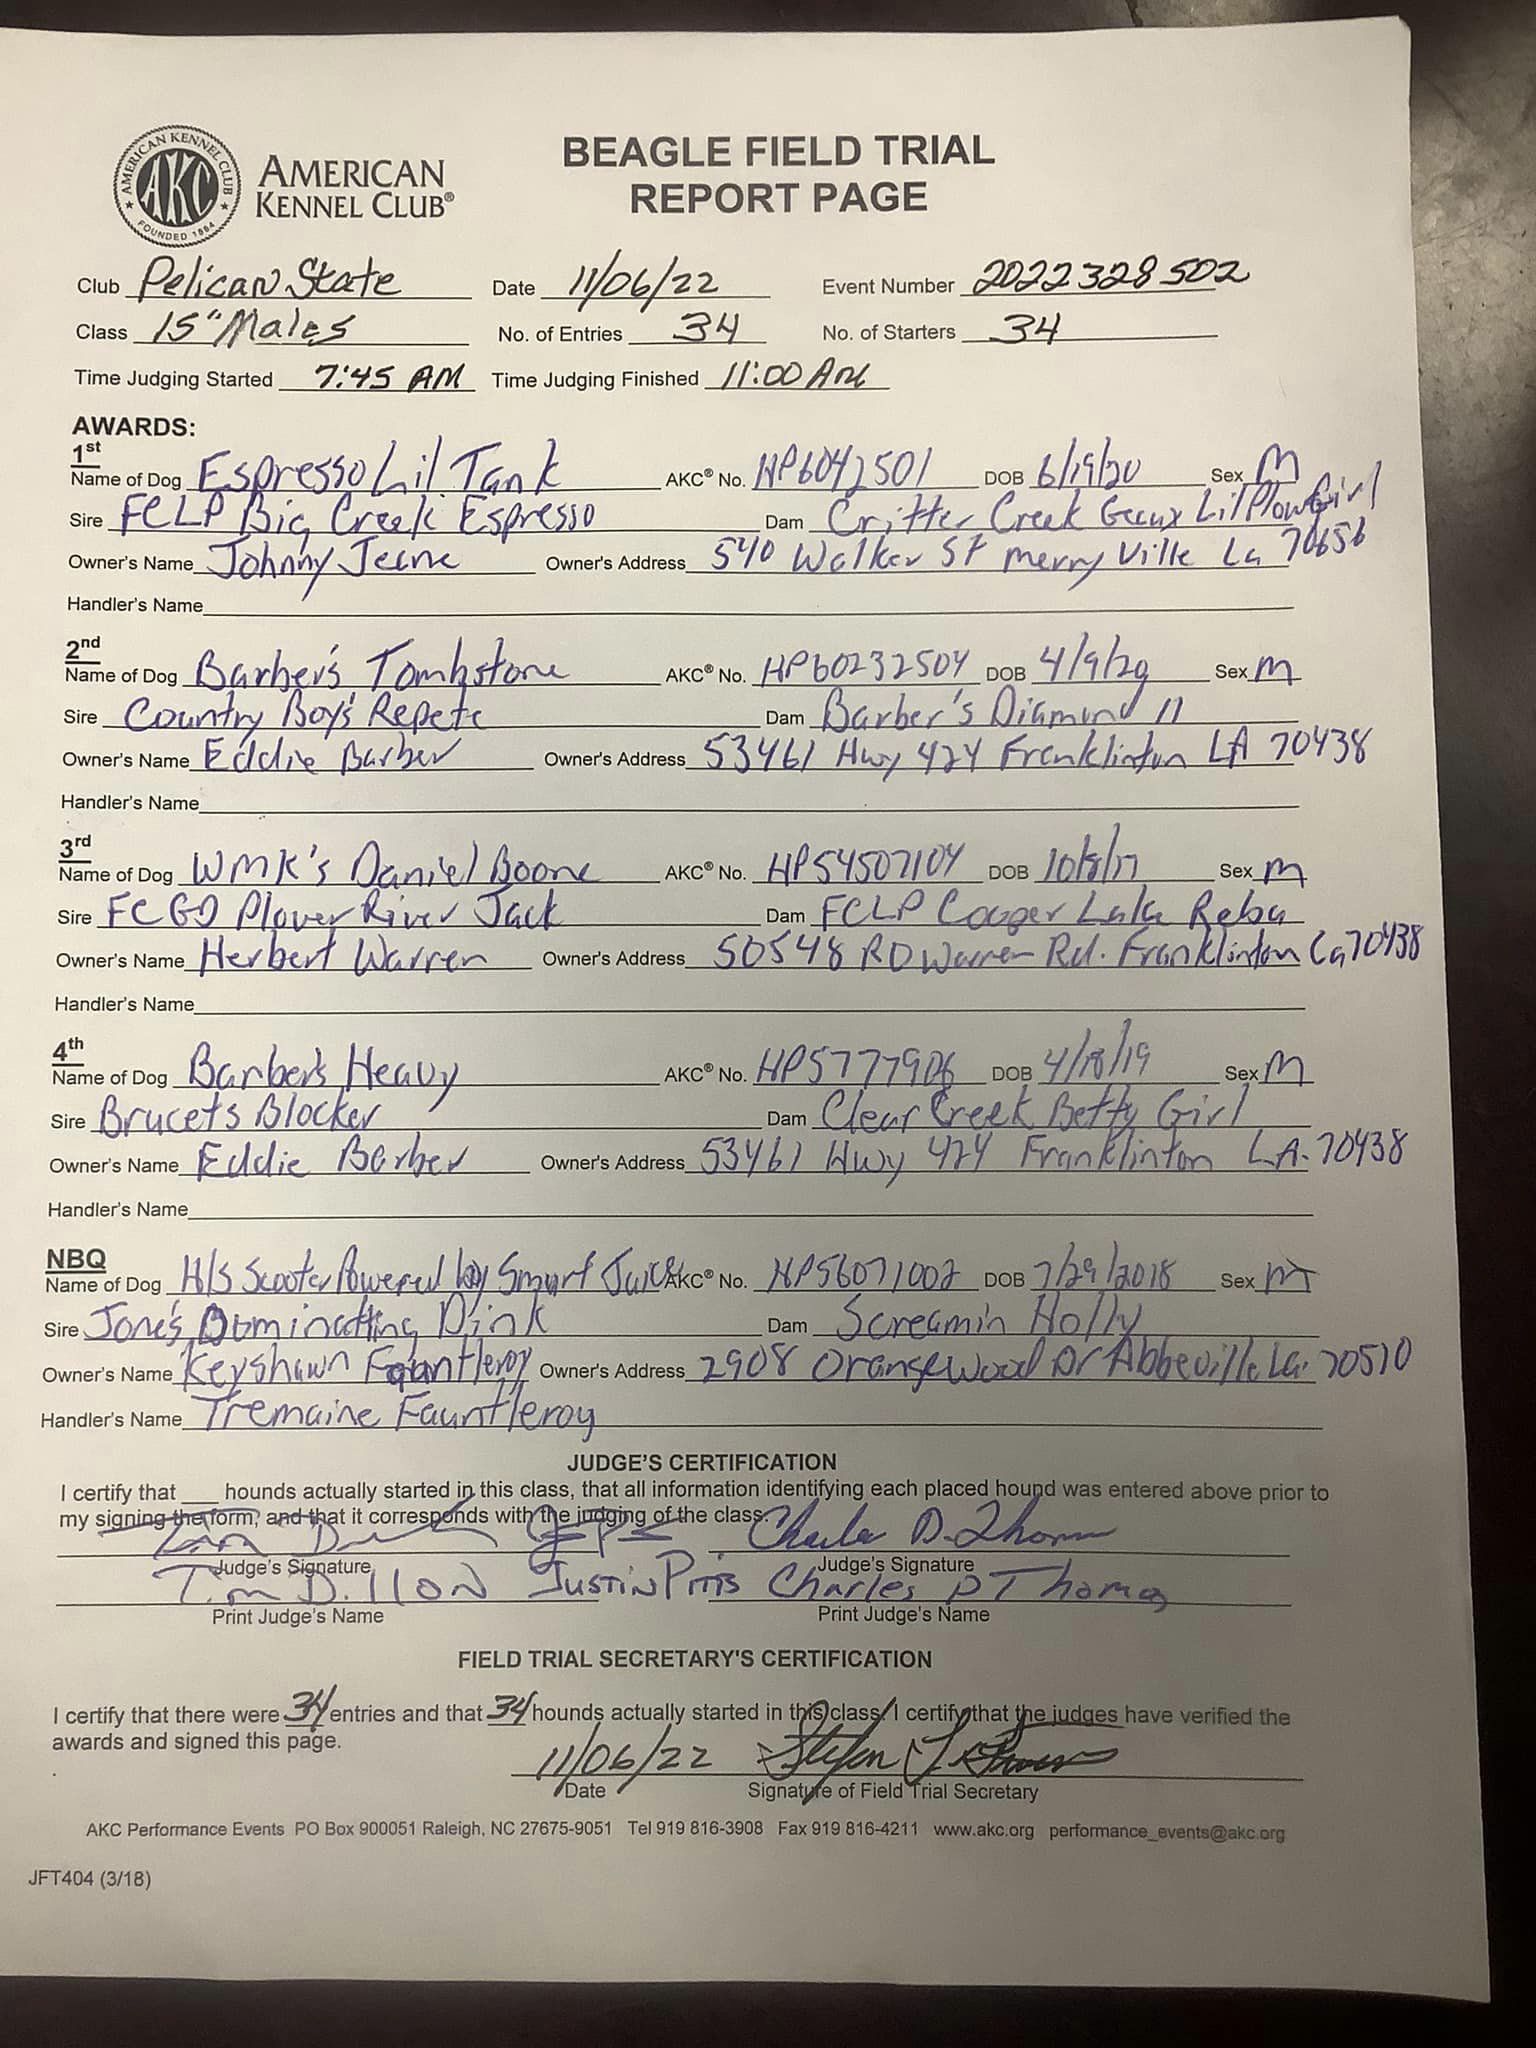 AMERICAN KENNEL CLUB
AKC
FOUNDED 1884
AMERICAN
KENNEL CLUB®
BEAGLE FIELD TRIAL
REPORT PAGE
Club Pelican State Date 11/06/22 Event Number 2022328502
Class 15" Males No. of Entries 34 No. of Starters 34
Time Judging Started 7:45 AM Time Judging Finished 11:00 AM
AWARDS:
1st
Name of Dog Espresso Lil Tank AKC® No. HP6042501 DOB 6/19/20 Sex M
Sire FCLP Big Creek Espresso Dam Critter Creek Geaux Lil Plow Girl
Owner's Name Johnny Owner's Address 540 Walker St Merryville La 70656
Handler's Name
2nd
Name of Dog Barber's Tombstone AKC® No. HP60232504 DOB 4/9/20 Sex M
Sire Country Boy's Repete Dam Barber's Diamond 11
Owner's Name Eddie Barber Owner's Address 53461 Hwy 424 Franklinton LA 70438
Handler's Name
3rd
Name of Dog WMK's Daniel Boone AKC® No. HP54507104 DOB 10/8/17 Sex M
Sire FCGD Plover River Jack Dam FCLP Cooper Lake Reba
Owner's Name Herbert Warren Owner's Address 50548 RD Warren Rd. Franklinton La 70438
Handler's Name
4th
Name of Dog Barber's Heavy AKC® No. HP57777906 DOB 4/18/19 Sex M
Sire Brucet's Blocker Dam Clear Creek Betty Girl
Owner's Name Eddie Barber Owner's Address 53461 Hwy 424 Franklinton LA. 70438
Handler's Name
NBQ
Name of Dog H/S Scooter Powered by Smart Juice AKC® No. HP56071002 DOB 7/29/2018 Sex M
Sire Jone's Dominatting Dink Dam Screamin Holly
Owner's Name Keyshawn Fauntleroy Owner's Address 2908 Orangewood Dr Abbeville La. 70510
Handler's Name Tremaine Fauntleroy
JUDGE'S CERTIFICATION
I certify that ___ hounds actually started in this class, that all information identifying each placed hound was entered above prior to
my signing the form, and that it corresponds with the judging of the class.
Charles D. Thomas
Judge's Signature Judge's Signature
Tim Dillon Justin Pitts Charles D Thomas
Print Judge's Name Print Judge's Name
FIELD TRIAL SECRETARY'S CERTIFICATION
I certify that there were 34 entries and that 34 hounds actually started in this class. I certify that the judges have verified the
awards and signed this page.
11/06/22
Date Signature of Field Trial Secretary
AKC Performance Events PO Box 900051 Raleigh, NC 27675-9051 Tel 919 816-3908 Fax 919 816-4211 www.akc.org performance_events@akc.org
JFT404 (3/18)